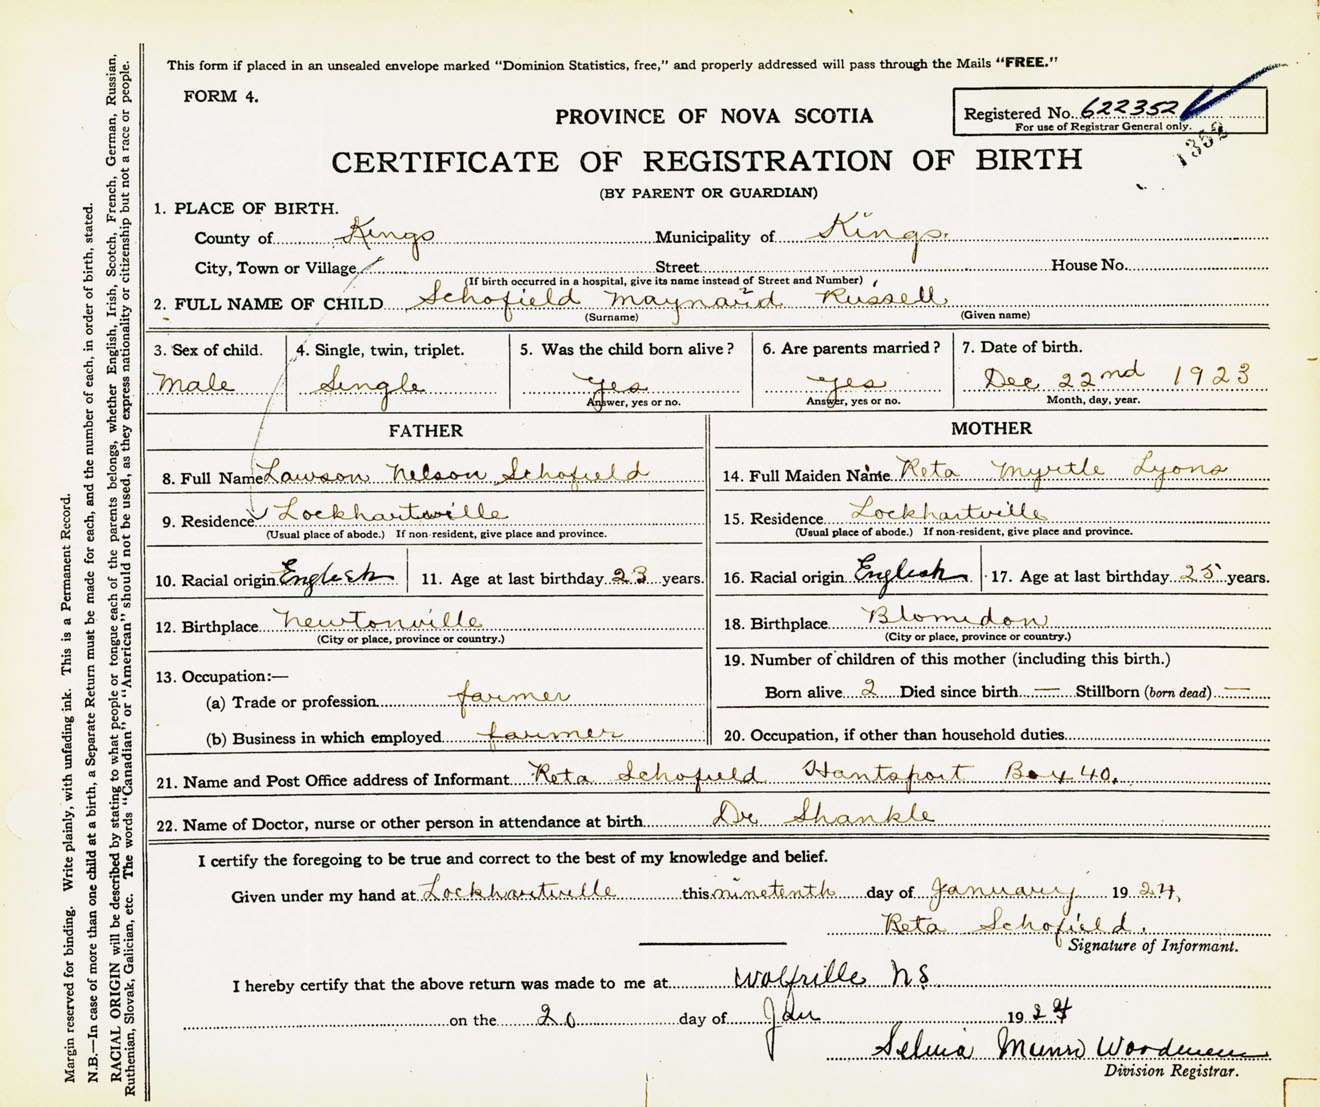 This form if placed in an unsealed envelope marked "Dominion Statistics, free," and properly addressed will pass through the Mails "FREE."
FORM 4.
PROVINCE OF NOVA SCOTIA
Registered No. 622352
For use of Registrar General only.
1352
CERTIFICATE OF REGISTRATION OF BIRTH
(BY PARENT OR GUARDIAN)
1. PLACE OF BIRTH.
County of Kings Municipality of Kings.
City, Town or Village Street House No.
(If birth occurred in a hospital, give its name instead of Street and Number)
2. FULL NAME OF CHILD Schofield Maynard Russell
(Surname) (Given name)
3. Sex of child. 4. Single, twin, triplet. 5. Was the child born alive? 6. Are parents married? 7. Date of birth.
Male Single Yes Yes Dec 22nd 1923
Answer, yes or no. Answer, yes or no. Month, day, year.
FATHER
8. Full Name Lawson Nelson Schofield
9. Residence Lockhartville
(Usual place of abode.) If non-resident, give place and province.
10. Racial origin English 11. Age at last birthday 23 years.
12. Birthplace Newtonville
(City or place, province or country.)
13. Occupation:—
(a) Trade or profession farmer
(b) Business in which employed farmer
MOTHER
14. Full Maiden Name Reta Myrtle Lyons
15. Residence Lockhartville
(Usual place of abode.) If non-resident, give place and province.
16. Racial origin English 17. Age at last birthday 25 years.
18. Birthplace Blomidon
(City or place, province or country.)
19. Number of children of this mother (including this birth.)
Born alive 2 Died since birth — Stillborn (born dead) —
20. Occupation, if other than household duties
21. Name and Post Office address of Informant Reta Schofield Hantsport Box 40.
22. Name of Doctor, nurse or other person in attendance at birth Dr Shankle
I certify the foregoing to be true and correct to the best of my knowledge and belief.
Given under my hand at Lockhartville this nineteenth day of January 1924,
Reta Schofield.
Signature of Informant.
I hereby certify that the above return was made to me at Wolfville N.S.
on the 20 day of Jan 1924
Selvia Munro
Division Registrar.
Margin reserved for binding. Write plainly, with unfading ink. This is a Permanent Record.
N.B.—In case of more than one child at a birth, a Separate Return must be made for each, and the number of each, in order of birth, stated.
RACIAL ORIGIN will be described by stating to what people or tongue each of the parents belongs, whether English, Irish, Scotch, French, German, Russian,
Ruthenian, Slovak, Galician, etc. The words "Canadian" or "American" should not be used, as they express nationality or citizenship but not a race or people.